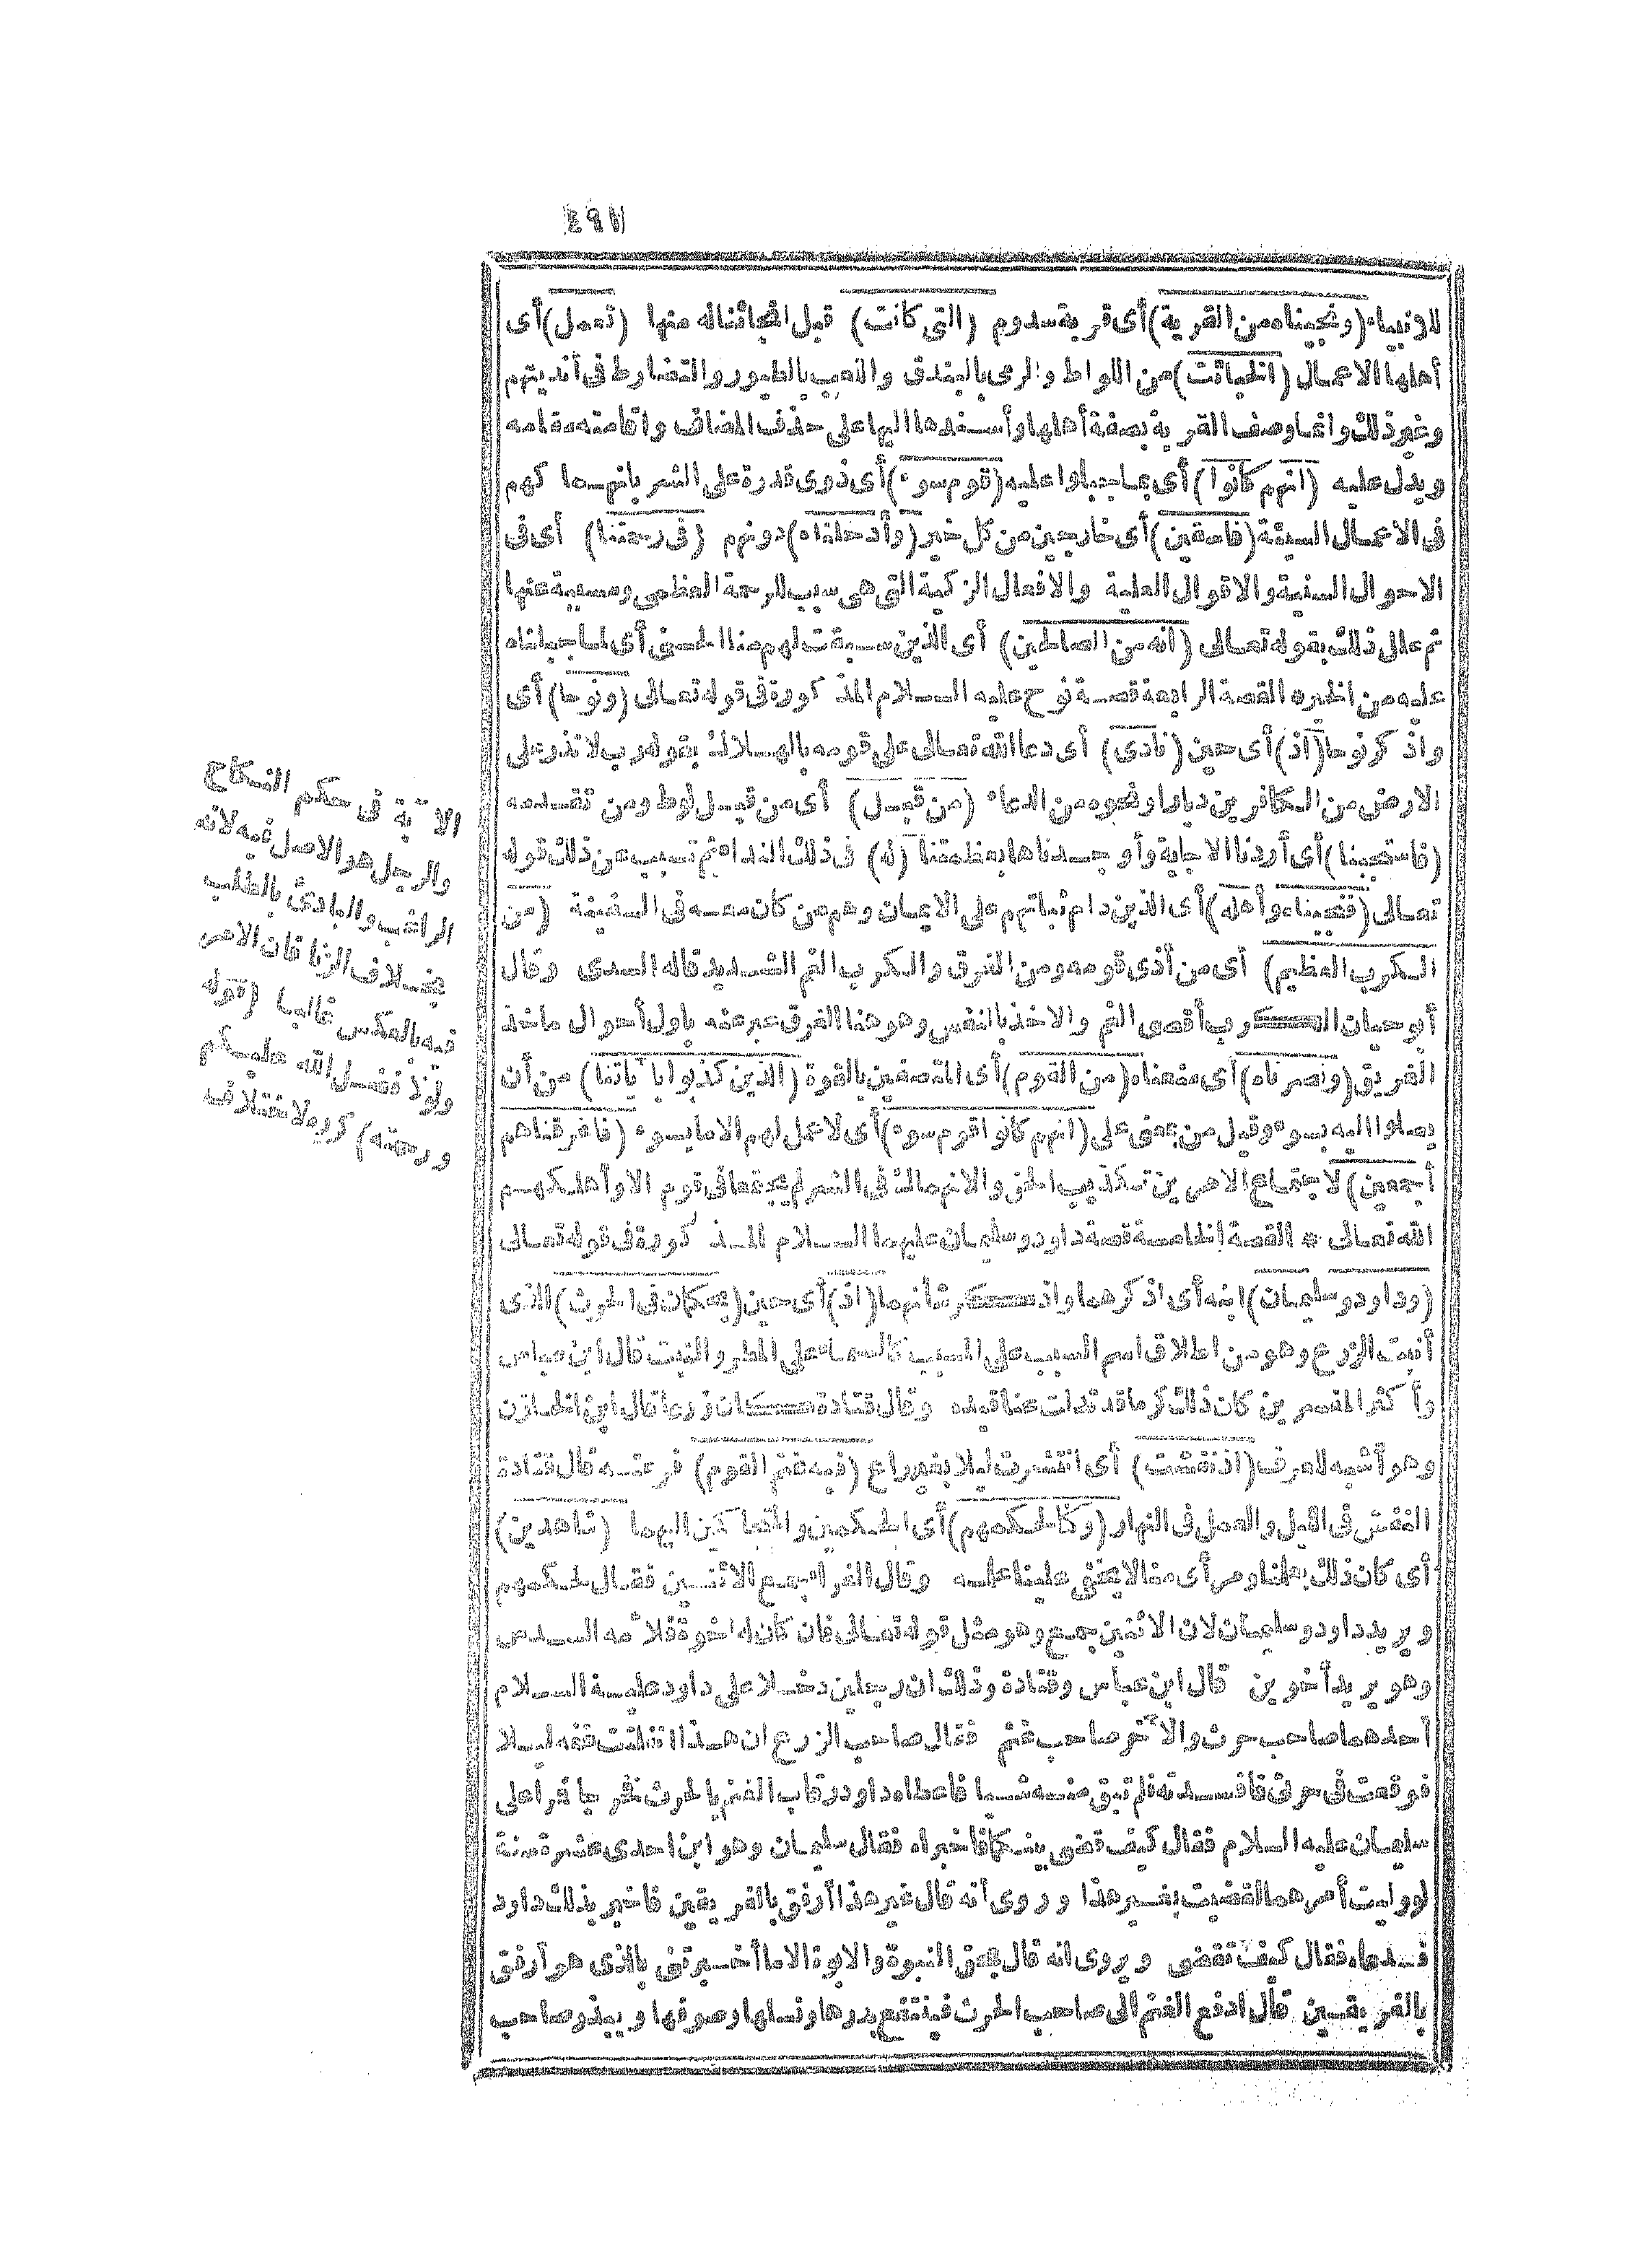 ٤٩٧
للانبياء (ونجيناه من القرية) أى قرية سدوم (التى كانت) قبل انجائناله منها (تعمل) أى
أهلها الاعمال (الخبائث) من اللواط والرمى بالبندق واللعب بالطيور والتضارط فى أنديتهم
وغير ذلك وانما وصف القرية بصفة أهلها وأسندها اليها على حذف المضاف واقامته مقامه
ويدل عليه (انهم كانوا) أى بما جبلوا عليه (قوم سوء) أى ذوى قدرة على الشر بانهما كهم
فى الاعمال السيئة (فاسقين) أى خارجين من كل خير (وأدخلناه) دونهم (فى رحمتنا) أى فى
الاحوال السنية والاقوال العلية والافعال الزكية التى هى سبب للرحمة العظمى ومسببة عنها
ثم علل ذلك بقوله تعالى (انه من الصالحين) أى الذين سبقت لهم منا الحسنى أى لما جبلناه
عليه من الخير * القصة الرابعة قصة نوح عليه السلام المذكورة فى قوله تعالى (ونوحا) أى
واذكر نوحا (اذ) أى حين (نادى) أى دعا الله تعالى على قومه بالهلاك بقوله رب لا تذر على
الارض من الكافرين ديارا ونحوه من الدعاء (من قبل) أى من قبل لوط ومن تقدمه
(فاستجبنا) أى أردنا الاجابة وأوجدناها بعظمتنا (له) فى ذلك النداء ثم تسبب عن ذلك قوله
تعالى (فنجيناه وأهله) أى الذين دام ثباتهم على الايمان وهم من كان معه فى السفينة (من
الكرب العظيم) أى من أذى قومه ومن الغرق والكرب الغم الشديد قاله السدى وقال
أبو حيان الكرب أقصى الغم والاخذ بالنفس وهو هنا الغرق عبر عنه باول أحوال ماخذ
الغريق (ونصرناه) أى منعناه (من القوم) أى المتصفين بالقوة (الذين كذبوا بآياتنا) من أن
يصلوا اليه بسوء وقيل من بمعنى على (انهم كانوا قوم سوء) أى لا عمل لهم الا ما يسوء (فاغرقناهم
أجمعين) لاجتماع الامرين تكذيب الحق والانهماك فى الشر لم يجتمعا فى قوم الا وأهلكهم
الله تعالى * القصة الخامسة قصة داود وسليمان عليهما السلام المذكورة فى قوله تعالى
(وداود وسليمان) ابنه أى اذكرهما واذكر شأنهما (اذ) أى حين (يحكمان فى الحرث) الذى
أنبت الزرع وهو من اطلاق اسم السبب على المسبب كالسماء على المطر والنبت قال ابن عباس
وأكثر المفسرين كان ذلك كرما قد تدلت عناقيده وقال قتادة كان زرعا قال ابن الخازن
وهو أشبه للعرف (اذ نفشت) أى انتشرت ليلا بغير راع (فيه غنم القوم) فرعته قال قتادة
النفش فى الليل والهمل فى النهار (وكنا لحكمهم) أى الحكمين والمتحاكمين اليهما (شاهدين)
أى كان ذلك بعلمنا ومرأى منا لا يخفى علينا علمه وقال الفراء جمع الاثنين فقال لحكمهم
ويريد داود وسليمان لان الاثنين جمع وهو مثل قوله تعالى فان كان له اخوة فلأمه السدس
وهو يريد أخوين قال ابن عباس وقتادة وذلك ان رجلين دخلا على داود عليه السلام
أحدهما صاحب حرث والآخر صاحب غنم فقال صاحب الزرع ان هذا انفلتت غنمه ليلا
فوقعت فى حرثى فافسدته فلم تبق منه شيأ فاعطاه داود رقاب الغنم بالحرث نفرجا فمرا على
سليمان عليه السلام فقال كيف قضى بينكما فاخبراه فقال سليمان وهو ابن احدى عشرة سنة
لو وليت أمرهما لقضيت بغير هذا وروى أنه قال غير هذا أرفق بالفريقين فاخبر بذلك داود
فدعاه فقال كيف تقضى ويروى انه قال بحق النبوة والابوة الا ما أخبرتنى بالذى هو أرفق
بالفريقين قال ادفع الغنم الى صاحب الحرث فينتفع بدرها ونسلها وصوفها ويبذر صاحب
الآية فى حكم النكاح
والرجل هو الاصل فيه لانه
الراغب والبادئ بالطلب
بخلاف الزنا فان الامر
فيه بالعكس غالبا (قوله
ولولا فضل الله عليكم
ورحمته) كرره لاختلاف